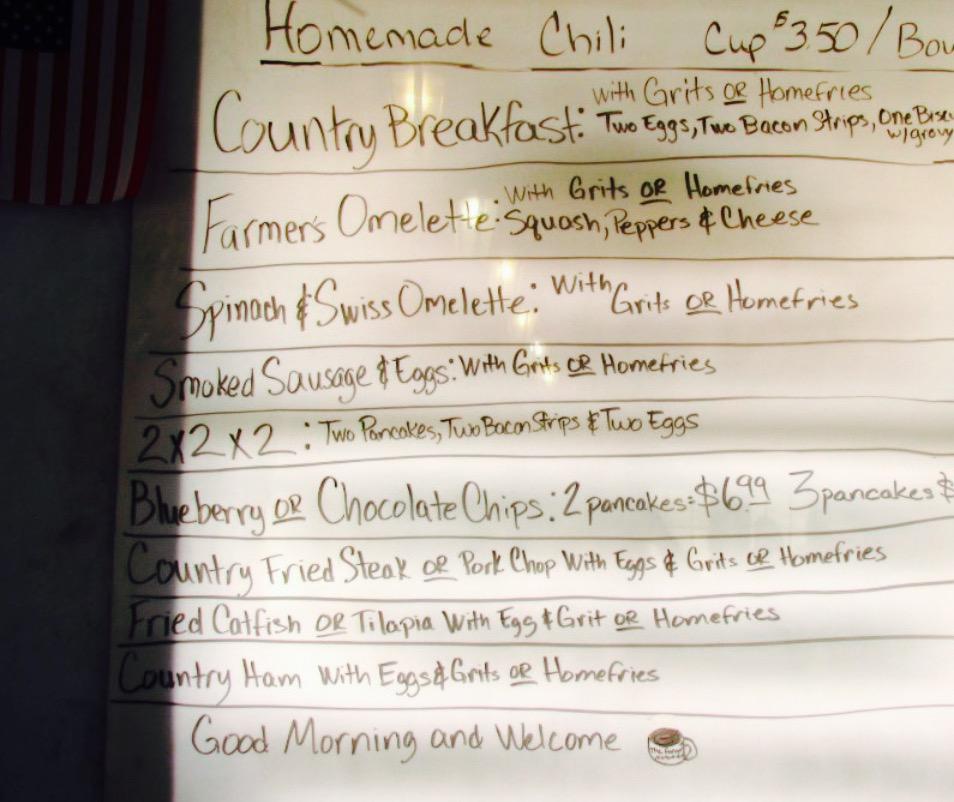 Homemade Chili Cup $3.50 / Bow
Country Breakfast: with Grits OR Homefries
Two Eggs, Two Bacon Strips, One Biscu
w/gravy
Farmer's Omelette: With Grits OR Homefries
Squash, Peppers & Cheese
Spinach & Swiss Omelette: With Grits OR Homefries
Smoked Sausage & Eggs: With Grits OR Homefries
2x2x2 : Two Pancakes, Two Bacon Strips & Two Eggs
Blueberry OR Chocolate Chips: 2 pancakes = $6.99 3 pancakes $
Country Fried Steak OR Pork Chop With Eggs & Grits OR Homefries
Fried Catfish OR Tilapia With Egg & Grit OR Homefries
Country Ham With Eggs & Grits OR Homefries
Good Morning and Welcome